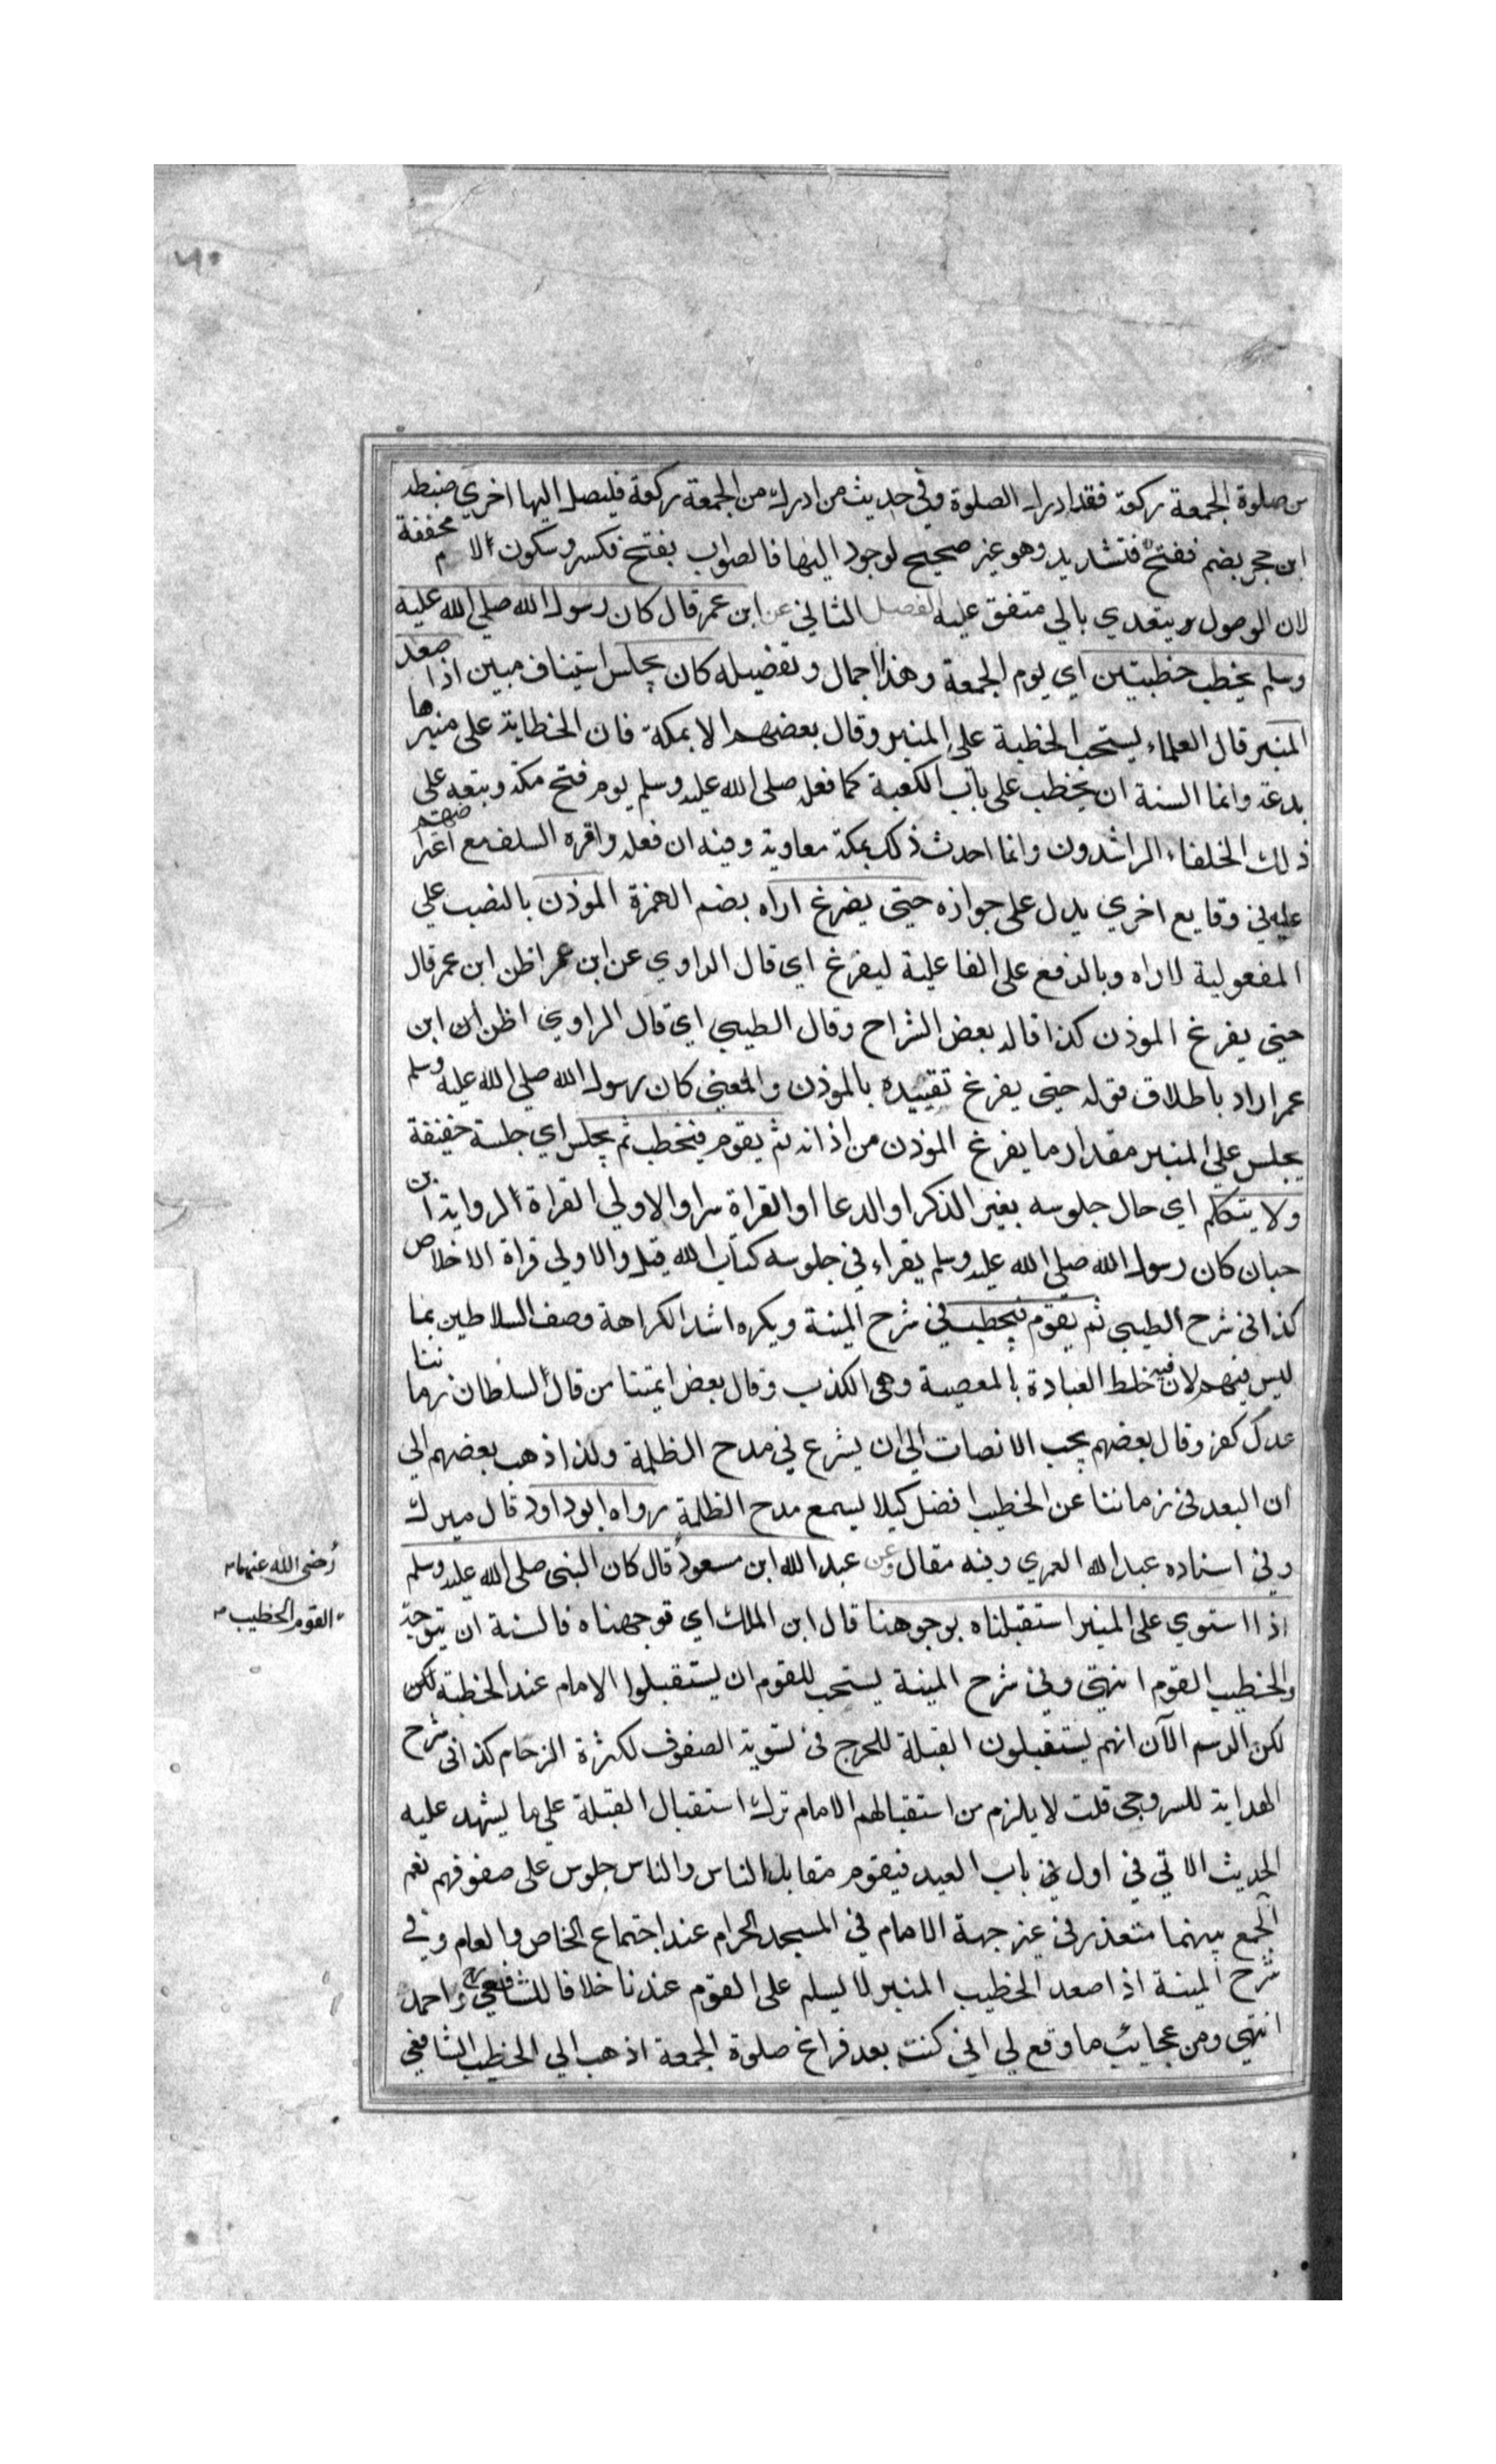 ٦٠
من صلوة الجمعة ركعة فقد ادرك الصلوة وفي حديث من ادرك من الجمعة ركعة فليصل اليها اخرى ضبطه
ابن حجر بضم ففتح فتشديد وهو غير صحيح لوجود اليها فالصواب بفتح فكسر وسكون اللام مخففة
لان الوصول يتعدي بالي متفق عليه الفصل الثاني عن ابن عمر قال كان رسول الله صلي الله عليه
وسلم يخطب خطبتين اي يوم الجمعة وهذا اجمال وتفصيله كان يجلس استيناف مبين اذا صعد
المنبر قال العلماء يستحب الخطبة على المنبر وقال بعضهم الا بمكة فان الخطابة على منبرها
بدعة وانما السنة ان يخطب على باب الكعبة كما فعله صلى الله عليه وسلم يوم فتح مكة وتبعه على
ذلك الخلفاء الراشدون وانما احدث ذلك بمكة معاوية وفيه ان فعله واقره السلف مع اعتراضهم
عليه في وقايع اخري يدل على جوازه حتى يفرغ اراه بضم الهمزة الموذن بالنصب علي
المفعولية لاراه وبالرفع على الفاعلية ليفرغ اي قال الراوي عن ابن عمر اظن ابن عمر قال
حتي يفرغ الموذن كذا قاله بعض الشراح وقال الطيبي اي قال الراوي اظن ان ابن
عمر اراد باطلاق قوله حتى يفرغ تقييده بالموذن والمعني كان رسول الله صلي الله عليه وسلم
يجلس علي المنبر مقدار ما يفرغ الموذن من اذانه ثم يقوم فيخطب ثم يجلس اي جلسة خفيفة
ولا يتكلم اي حال جلوسه بغير الذكر او الدعا او القراة سرا والاولي القراة لرواية ابن
حبان كان رسول الله صلي الله عليه وسلم يقراء في جلوسه كتاب الله قيل والاولي قراة الاخلاص
كذا في شرح الطيبي ثم يقوم فيخطب في شرح المنية ويكره اشد الكراهة وصف السلاطين بما
ليس فيهم لان فيه خلط العبادة بالمعصية وهي الكذب وقال بعض ايمتنا من قال لسلطان زماننا
عدل كفر وقال بعضهم يجب الانصات الي ان يشرع في مدح الظلمة ولذا ذهب بعضهم الي
ان البعد في زماننا عن الخطيب افضل كيلا يسمع مدح الظلمة رواه ابو داود قال ميرك
وفي اسناده عبد الله العمري وفيه مقال وعن عبد الله ابن مسعود قال كان النبي صلى الله عليه وسلم
رضى الله عنهما
اذا استوي على المنبر استقبلناه بوجوهنا قال ابن الملك اي توجهناه فالسنة ان يتوجه
القوم الخطيب
والخطيب القوم انتهى وفي شرح المنية يستحب للقوم ان يستقبلوا الامام عند الخطبة لكن
لكن الرسم الآن انهم يستقبلون القبلة للحرج في تسوية الصفوف لكثرة الزحام كذا في شرح
الهداية للسروجي قلت لا يلزم من استقبالهم الامام ترك استقبال القبلة علي ما يشهد عليه
الحديث الاتي في اول في باب العيد فيقوم مقابل الناس والناس جلوس على صفوفهم نعم
الجمع بينهما متعذر في غير جهة الامام في المسجد الحرام عند اجتماع الخاص والعام وفي
شرح المنية اذا صعد الخطيب المنبر لا يسلم على القوم عندنا خلافا للشافعي واحمد
انتهي ومن عجايب ما وقع لي اني كنت بعد فراغ صلوة الجمعة اذهب الي الخطيب الشافعي